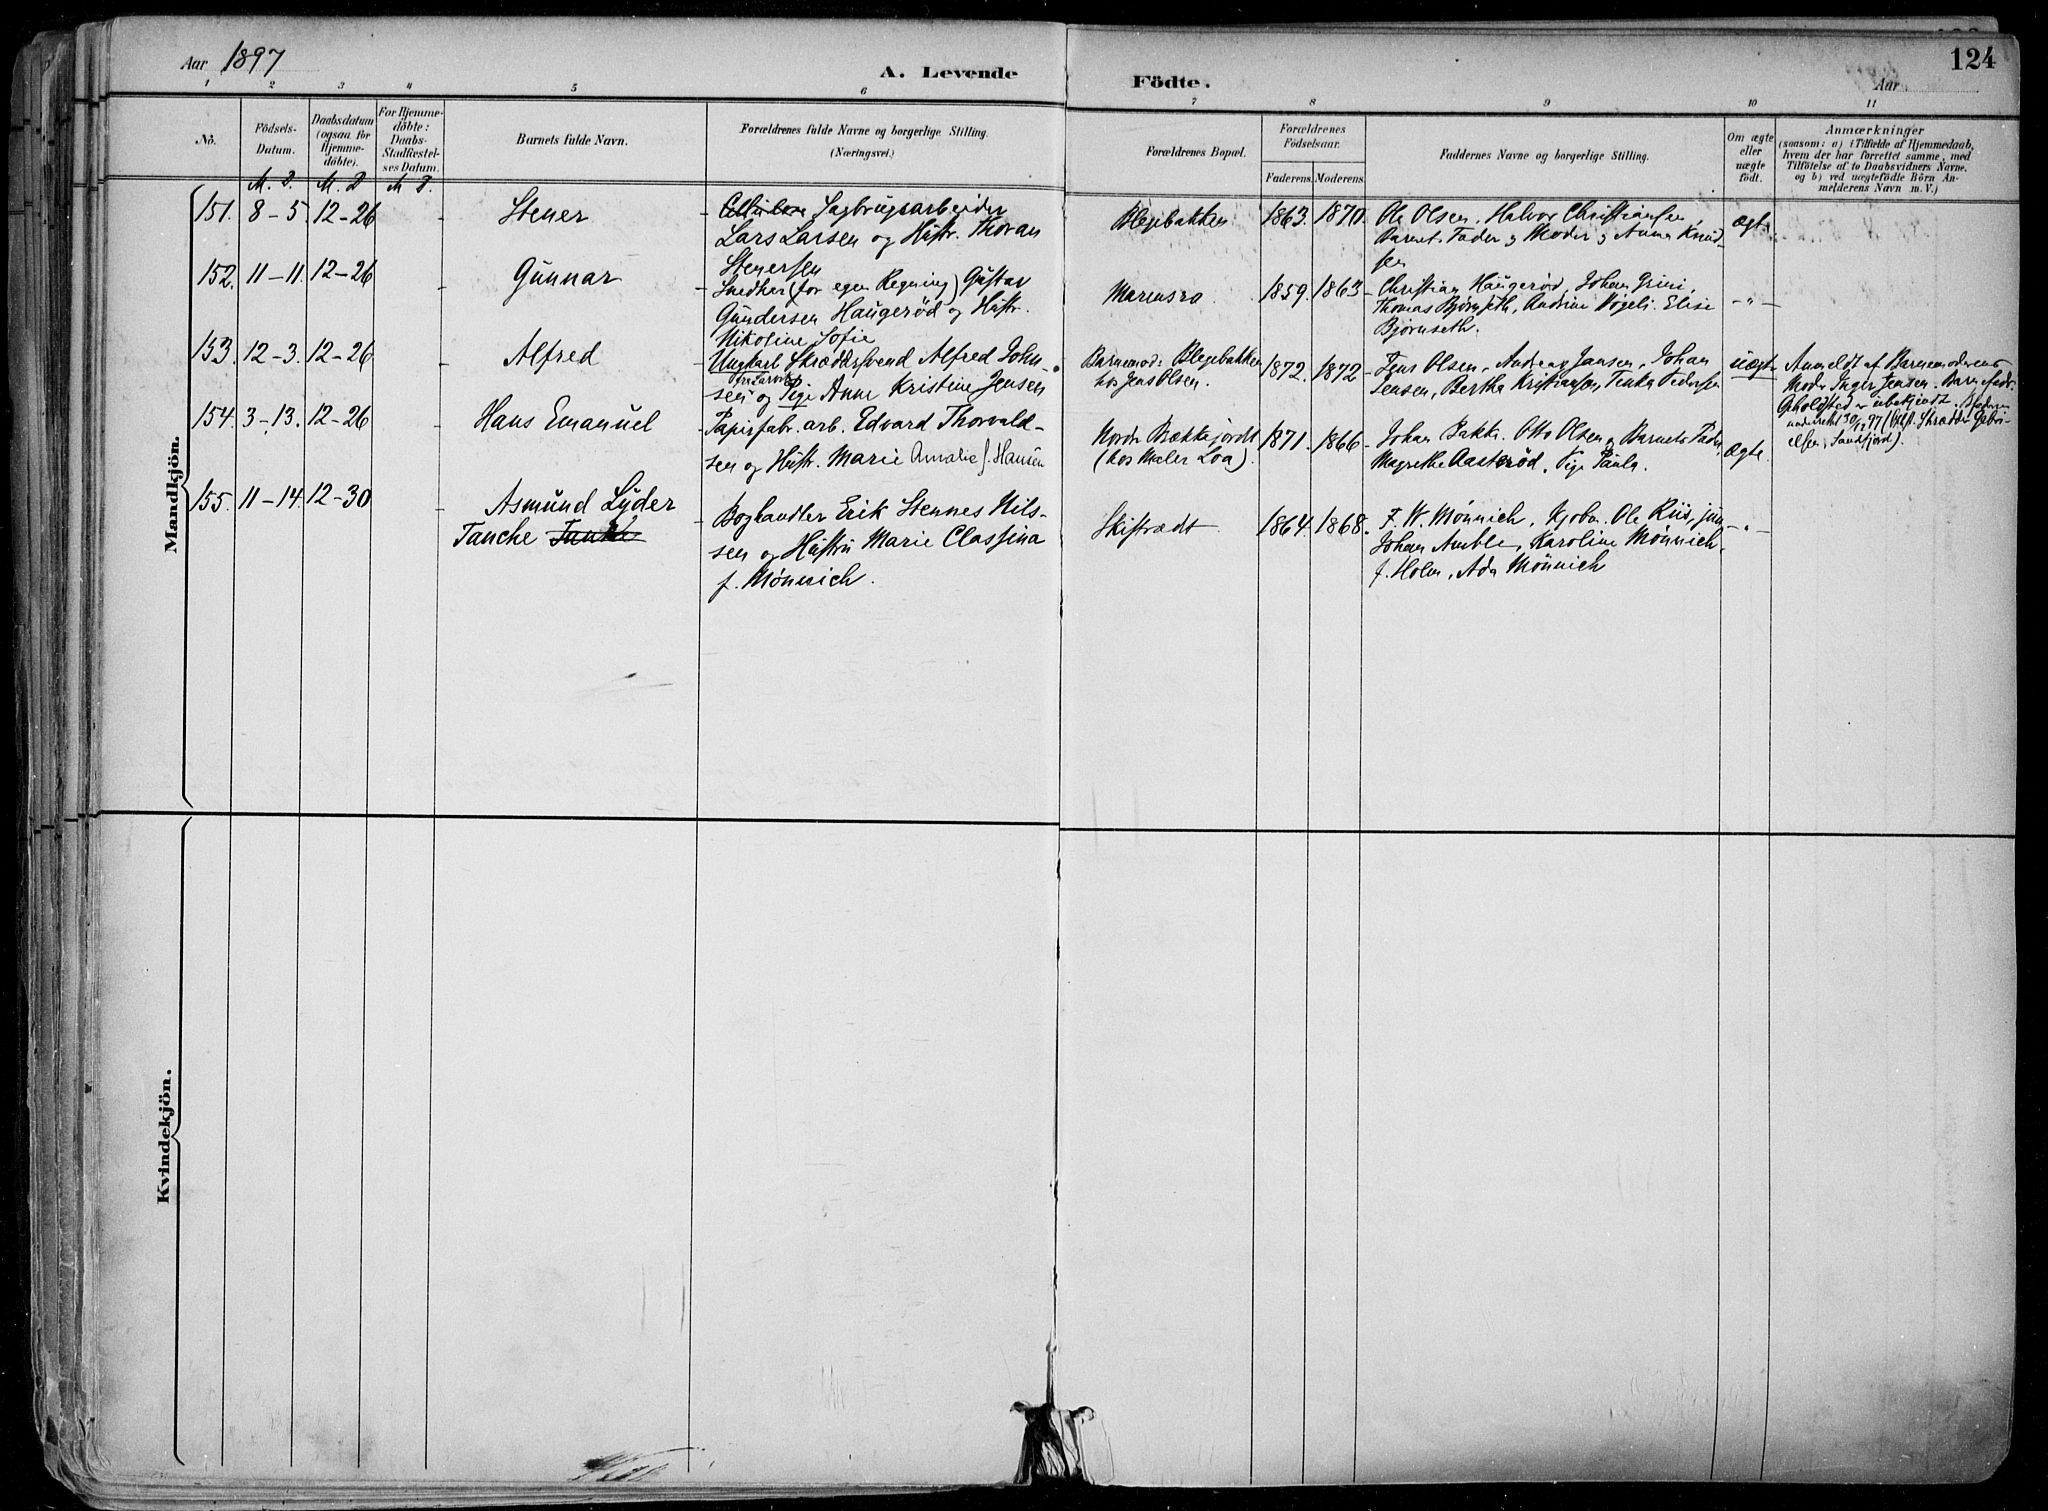 Aar 1897
A. Levende
Födte.
124
Aar
1 2 3 4 5 6 7 8 9 10 11
No.
Födsels-
Datum.
M. D.
Daabsdatum
(ogsaa for
Hjemme-
döbte).
M. D
For Hjemme-
döbte:
Daabs-
Stadfæstel-
ses Datum.
M D
Barnets fulde Navn.
Forældrenes fulde Navne og borgerlige Stilling.
(Næringsvei.)
Forældrenes Bopæl.
Forældrenes
Födselsaar.
Faderens. Moderens.
Faddernes Navne og borgerlige Stilling.
Om ægte
eller
uægte
födt.
Anmærkninger
(saasom: a) i Tilfælde af Hjemmedaab,
hvem der har forrettet samme, med
Tilföielse af to Daabsvidners Navne,
og b) ved uægtefödte Börn An-
melderens Navn m. V.)
Mandkjön.
151. 8-5 12-26 - Stener
- Sagbrugsarbeider
Lars Larsen og Hustr. Thoran
Stenersen
Blegebakken 1863. 1870.
Ole Olsen, Halvor Christiansen,
Barnets Fader og Moder og Anna Knud-
sen
ægte
152. 11-11. 12-26 - Gunnar
Snedker (for egen Regning) Gustav
Gundersen Haugerød og Hustr.
Nikoline Sofie
Marensro 1859. 1863
Christian Haugerød, Johan Grini,
Thomas Bjørnseth, Andrine Vogeli. Elise
Bjørnseth.
-"-
153. 12-3. 12-26 - Alfred
Ungkarl Skræddersvend Alfred John-
fra Larvik
sen og Pige Anne Kristine Jensen
Barnemod: Blegebakken
hos Jens Olsen.
1872. 1872
Jens Olsen, Andreas Jansen, Johan
Jensen, Bertha Kristiansen, Tinka Pedersen
uægte
Anmeldt af Barnemoderens
Moder Inger Jensen. Barnefad.
Opholdsted er ubekjendt.
Sandefjord).
154. 3-13. 12-26 - Hans Emanuel
Papirfabr. arb. Edvard Thorvald-
sen og Hustr. Marie Amalie f. Hansen
Nordr Bækkefjordt
(hos Mæler Loa).
1871. 1866
Johan Bakke. Otto Olsen og Barnets Fader,
Magrethe Aasterød, Pige Paula
ægte.
155. 11-14. 12-30 - Asmund Lyder
Tanche Tanke
Boghandler Erik Stennes Nils-
sen og Hustru Marie Classina
f. Mønnich.
Skifrædt 1864. 1868.
F. W. Mønnich, Kjøbm. Ole Riis, jun.
Johan Amble, Karoline Mønnich
f. Holm, Ada Mønnich
-"-
Kvindekjön.